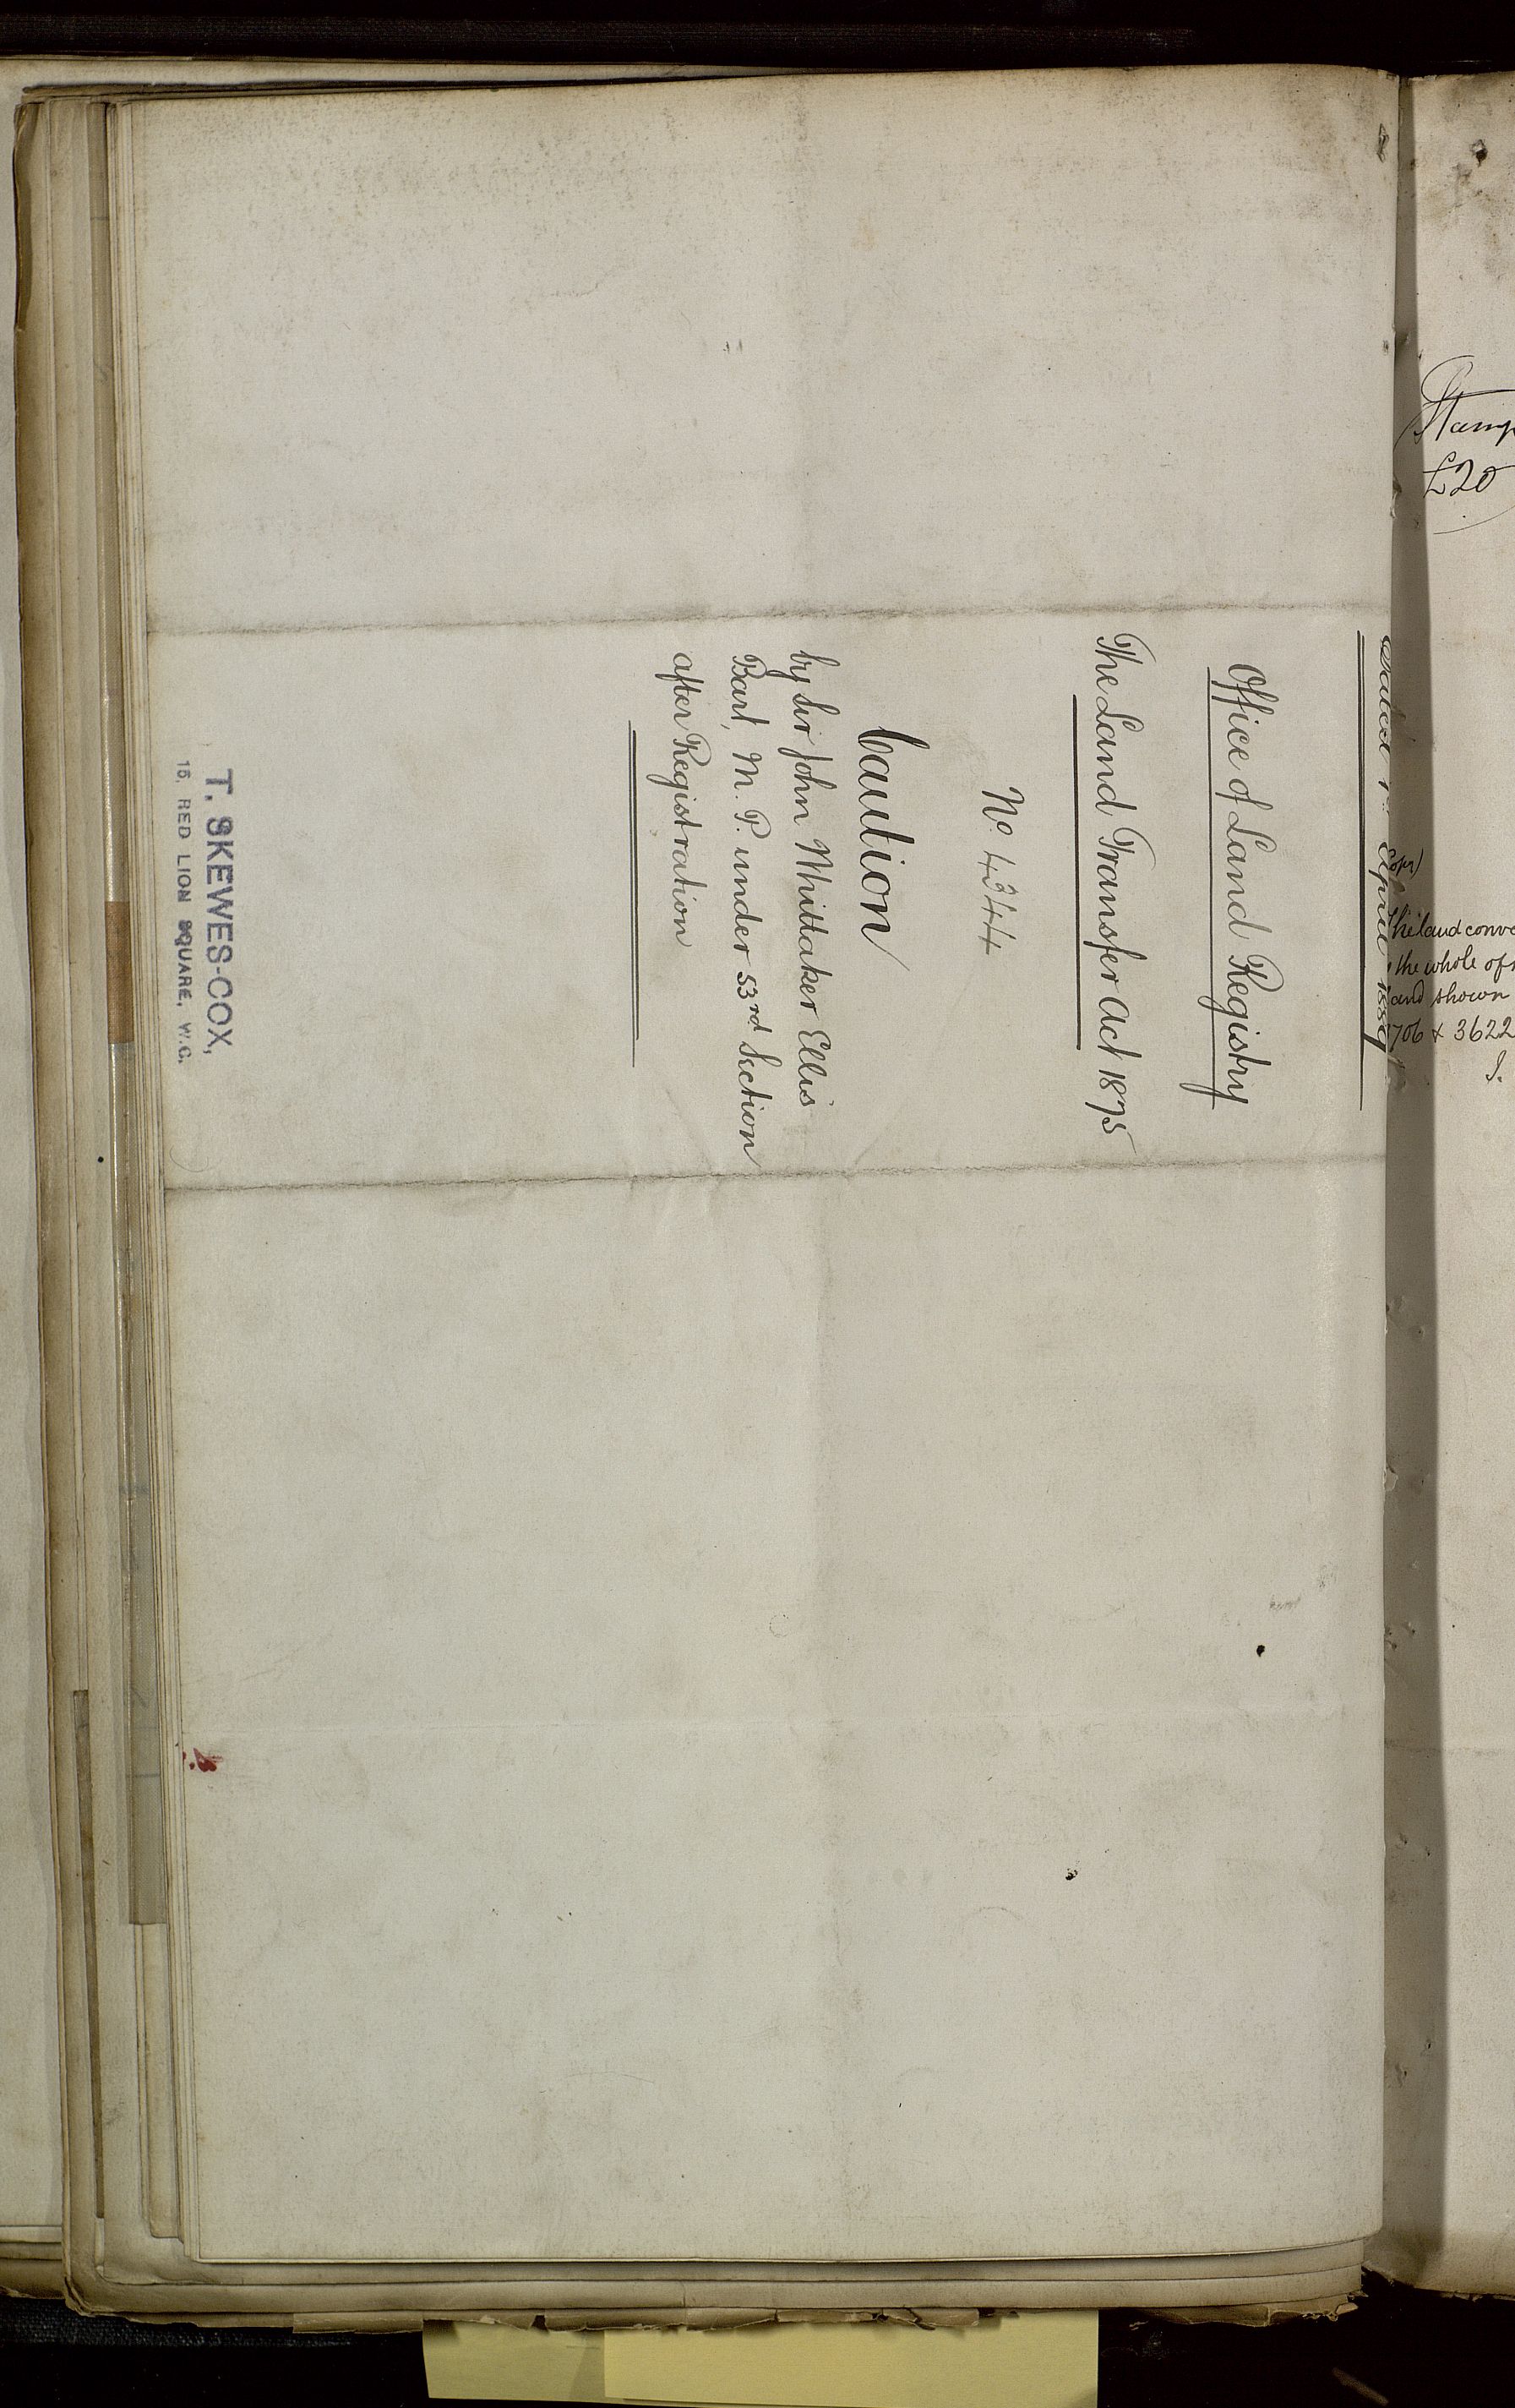 Dated 1st April 1889
Office of Land Registry
The Land Transfer Act 1875
No. 4344
Caution
by Sir John Whittaker Ellis
Bart, M. P. under 53rd Section
after Registration
T. SKEWES-COX,
15, RED LION SQUARE, W.C.
Stamp
£20
Copy)
The land conve
the whole of
land shown
706 & 3622